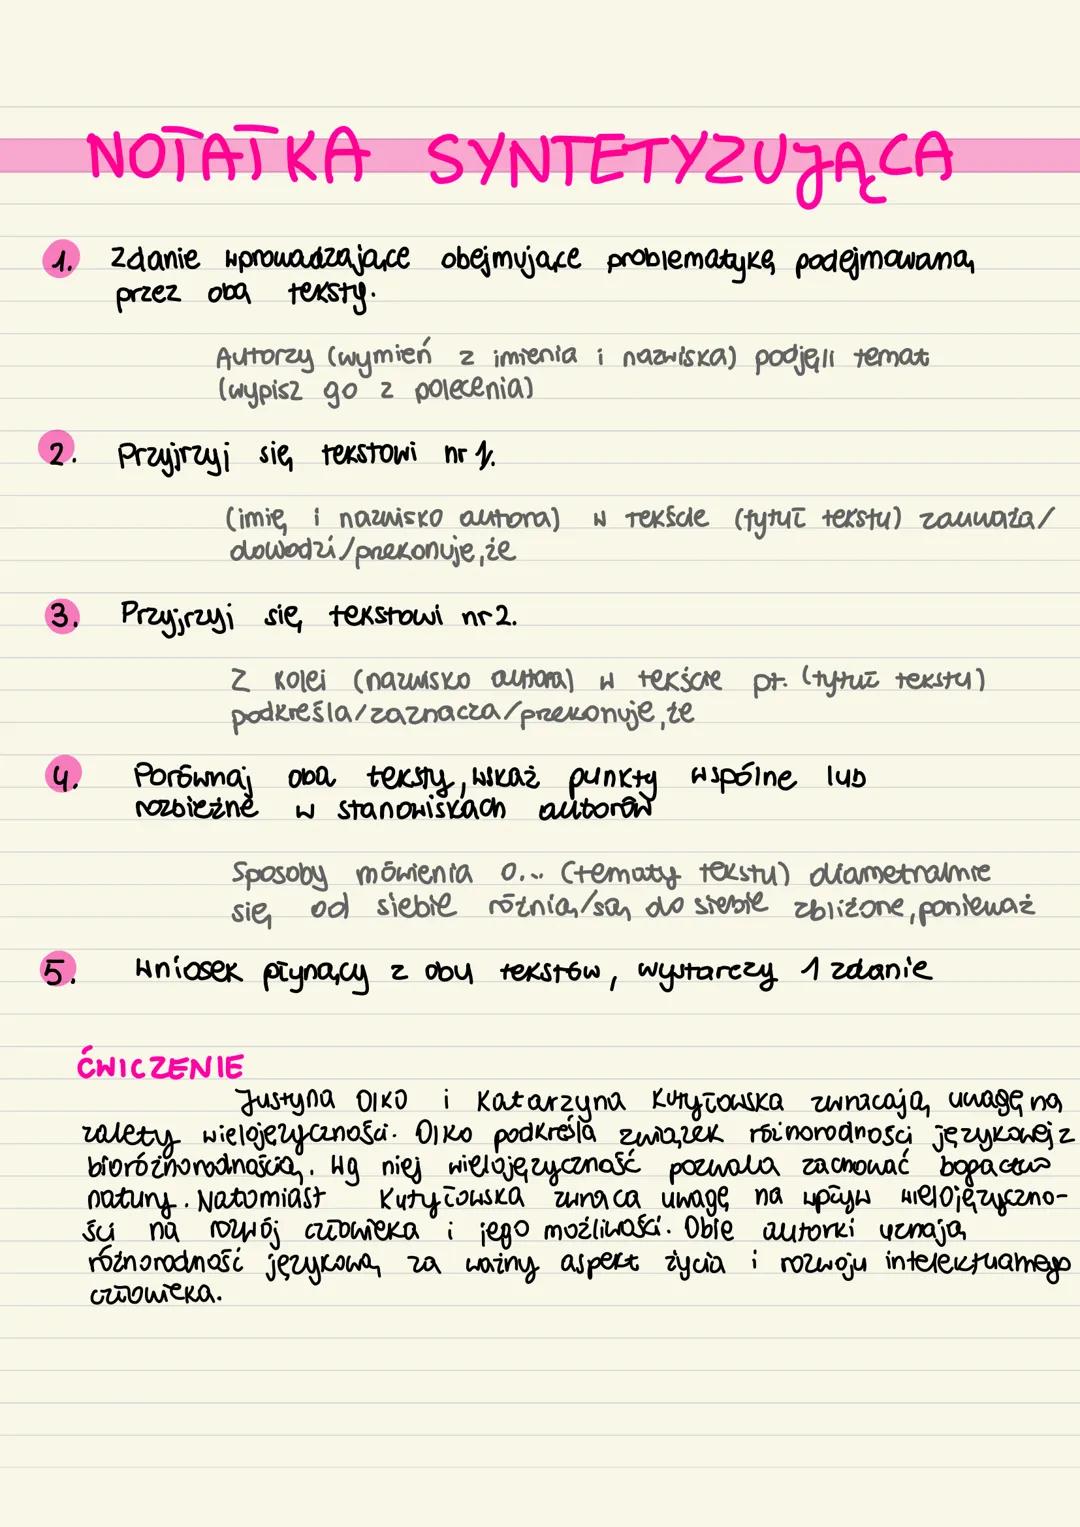 NOTATKA SYNTETYZUJĄCA
1. Zdanie wprowadzające obejmujące problematykę podejmowaną
przez oba teksty.
Autorzy (wymień z imienia i nazwiska) podjęli temat
(wypisz go z polecenia)
2. Przyjrzyj się tekstowi nr 1.
(imię i nazwisko autora) w tekście (tytuł tekstu) zauważa/
dowodzi/przekonuje, że
3. Przyjrzyj się tekstowi nr 2.
Z kolei (nazwisko autora) w tekście pt. (tytuł tekstu)
podkreśla/zaznacza/przekonuje, że
4. Porównaj oba teksty, wskaż punkty wspólne lub
rozbieżne w stanowiskach autorów
Sposoby mówienia o... (tematy tekstu) diametralnie
się od siebie różnią/są do siebie zbliżone, ponieważ
5. Wniosek płynący z obu tekstów, wystarczy 1 zdanie
ĆWICZENIE
Justyna Olko i Katarzyna Kuryłowska zwracają uwagę na
zalety wielojęzyczności. Olko podkreśla związek różnorodności językowej z
bioróżnorodnością. Wg niej wielojęzyczność pozwala zachować bogactwo
natury. Natomiast Kutyłowska zwraca uwagę na wpływ wielojęzyczno-
ści na rozwój człowieka i jego możliwości. Obie autorki uznają
różnorodność językową za ważny aspekt życia i rozwoju intelektualnego
człowieka.